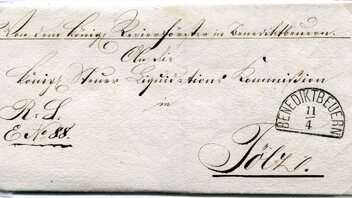 Von dem Königl Revierförster in Benediktbeuern.
An die
Königl Steuer Liquidations Kommission
in
R. S.
E No 88.
BENEDIKTBEUERN
11
4
Tölz